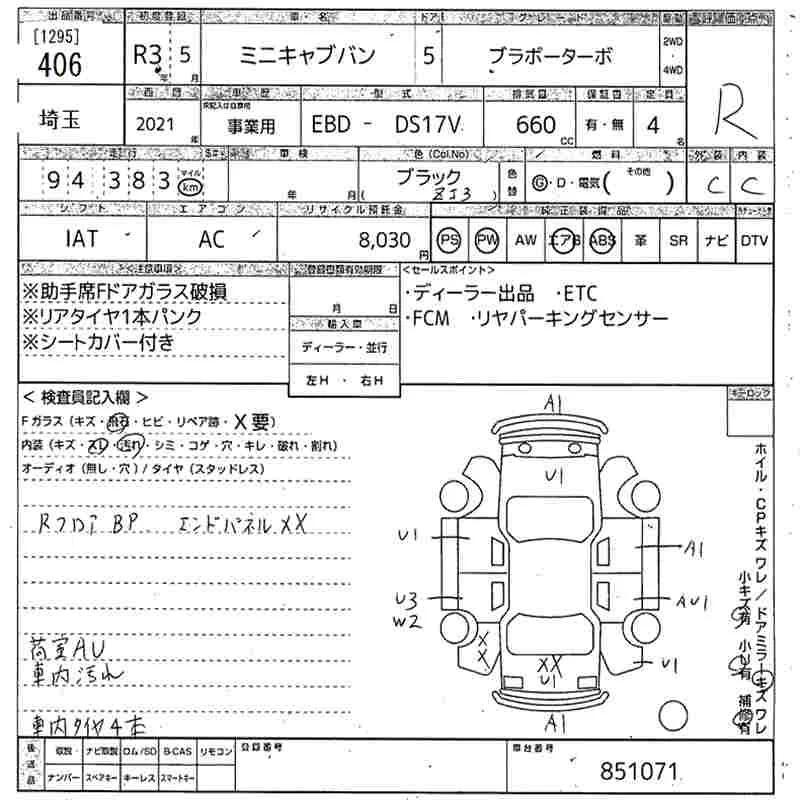 出品番号 初度登録 車・名 ドア グレード 駆動
[1295]
406 R3 5 ミニキャブバン 5 ブラボーターボ 2WD ・ 4WD
年 月
西暦 車歴 型式 排気量 保証書 定員
埼玉 2021年 事業用 EBD - DS17V 660 CC 有・無 4名 R
走行 車検 色(Col.No) 燃料 外装 内装
94,383 マイル km 年 月 ブラック ( ZJ3 ) 色替 G・D・電気( その他 ) C C
シフト エアコン リサイクル預託金 純正装備品
IAT AC 8,030円 PS PW AW エアB ABS 革 SR ナビ DTV
<注意事項> 登録書類有効期限 <セールスポイント>
※助手席Fドアガラス破損
※リアタイヤ1本パンク
※シートカバー付き
月 日
輸入車
ディーラー・並行
左H ・ 右H
・ディーラー出品 ・ETC
・FCM ・リヤパーキングセンサー
< 検査員記入欄 >
Fガラス(キズ・飛石・ヒビ・リペア跡・X要)
内装(キズ・スレ・汚れ・シミ・コゲ・穴・キレ・破れ・割れ)
オーディオ(無し・穴)/タイヤ(スタッドレス)
Rフロア BP エンドパネルXX
荷室AU
車内汚れ
車内タイヤ4本
キーロック
A1
U1
U1
A1
U3
W2
AU1
X
X
XX
U1
U1
A1
ホイル・CPキズ ワレ/ドアミラーキズ ワレ
小キズ有 小U有 補修有
後送品 取説 ナビ取説 ロム/SD B-CAS リモコン 登録番号 車台番号
ナンバー スペアキー キーレス スマートキー 851071